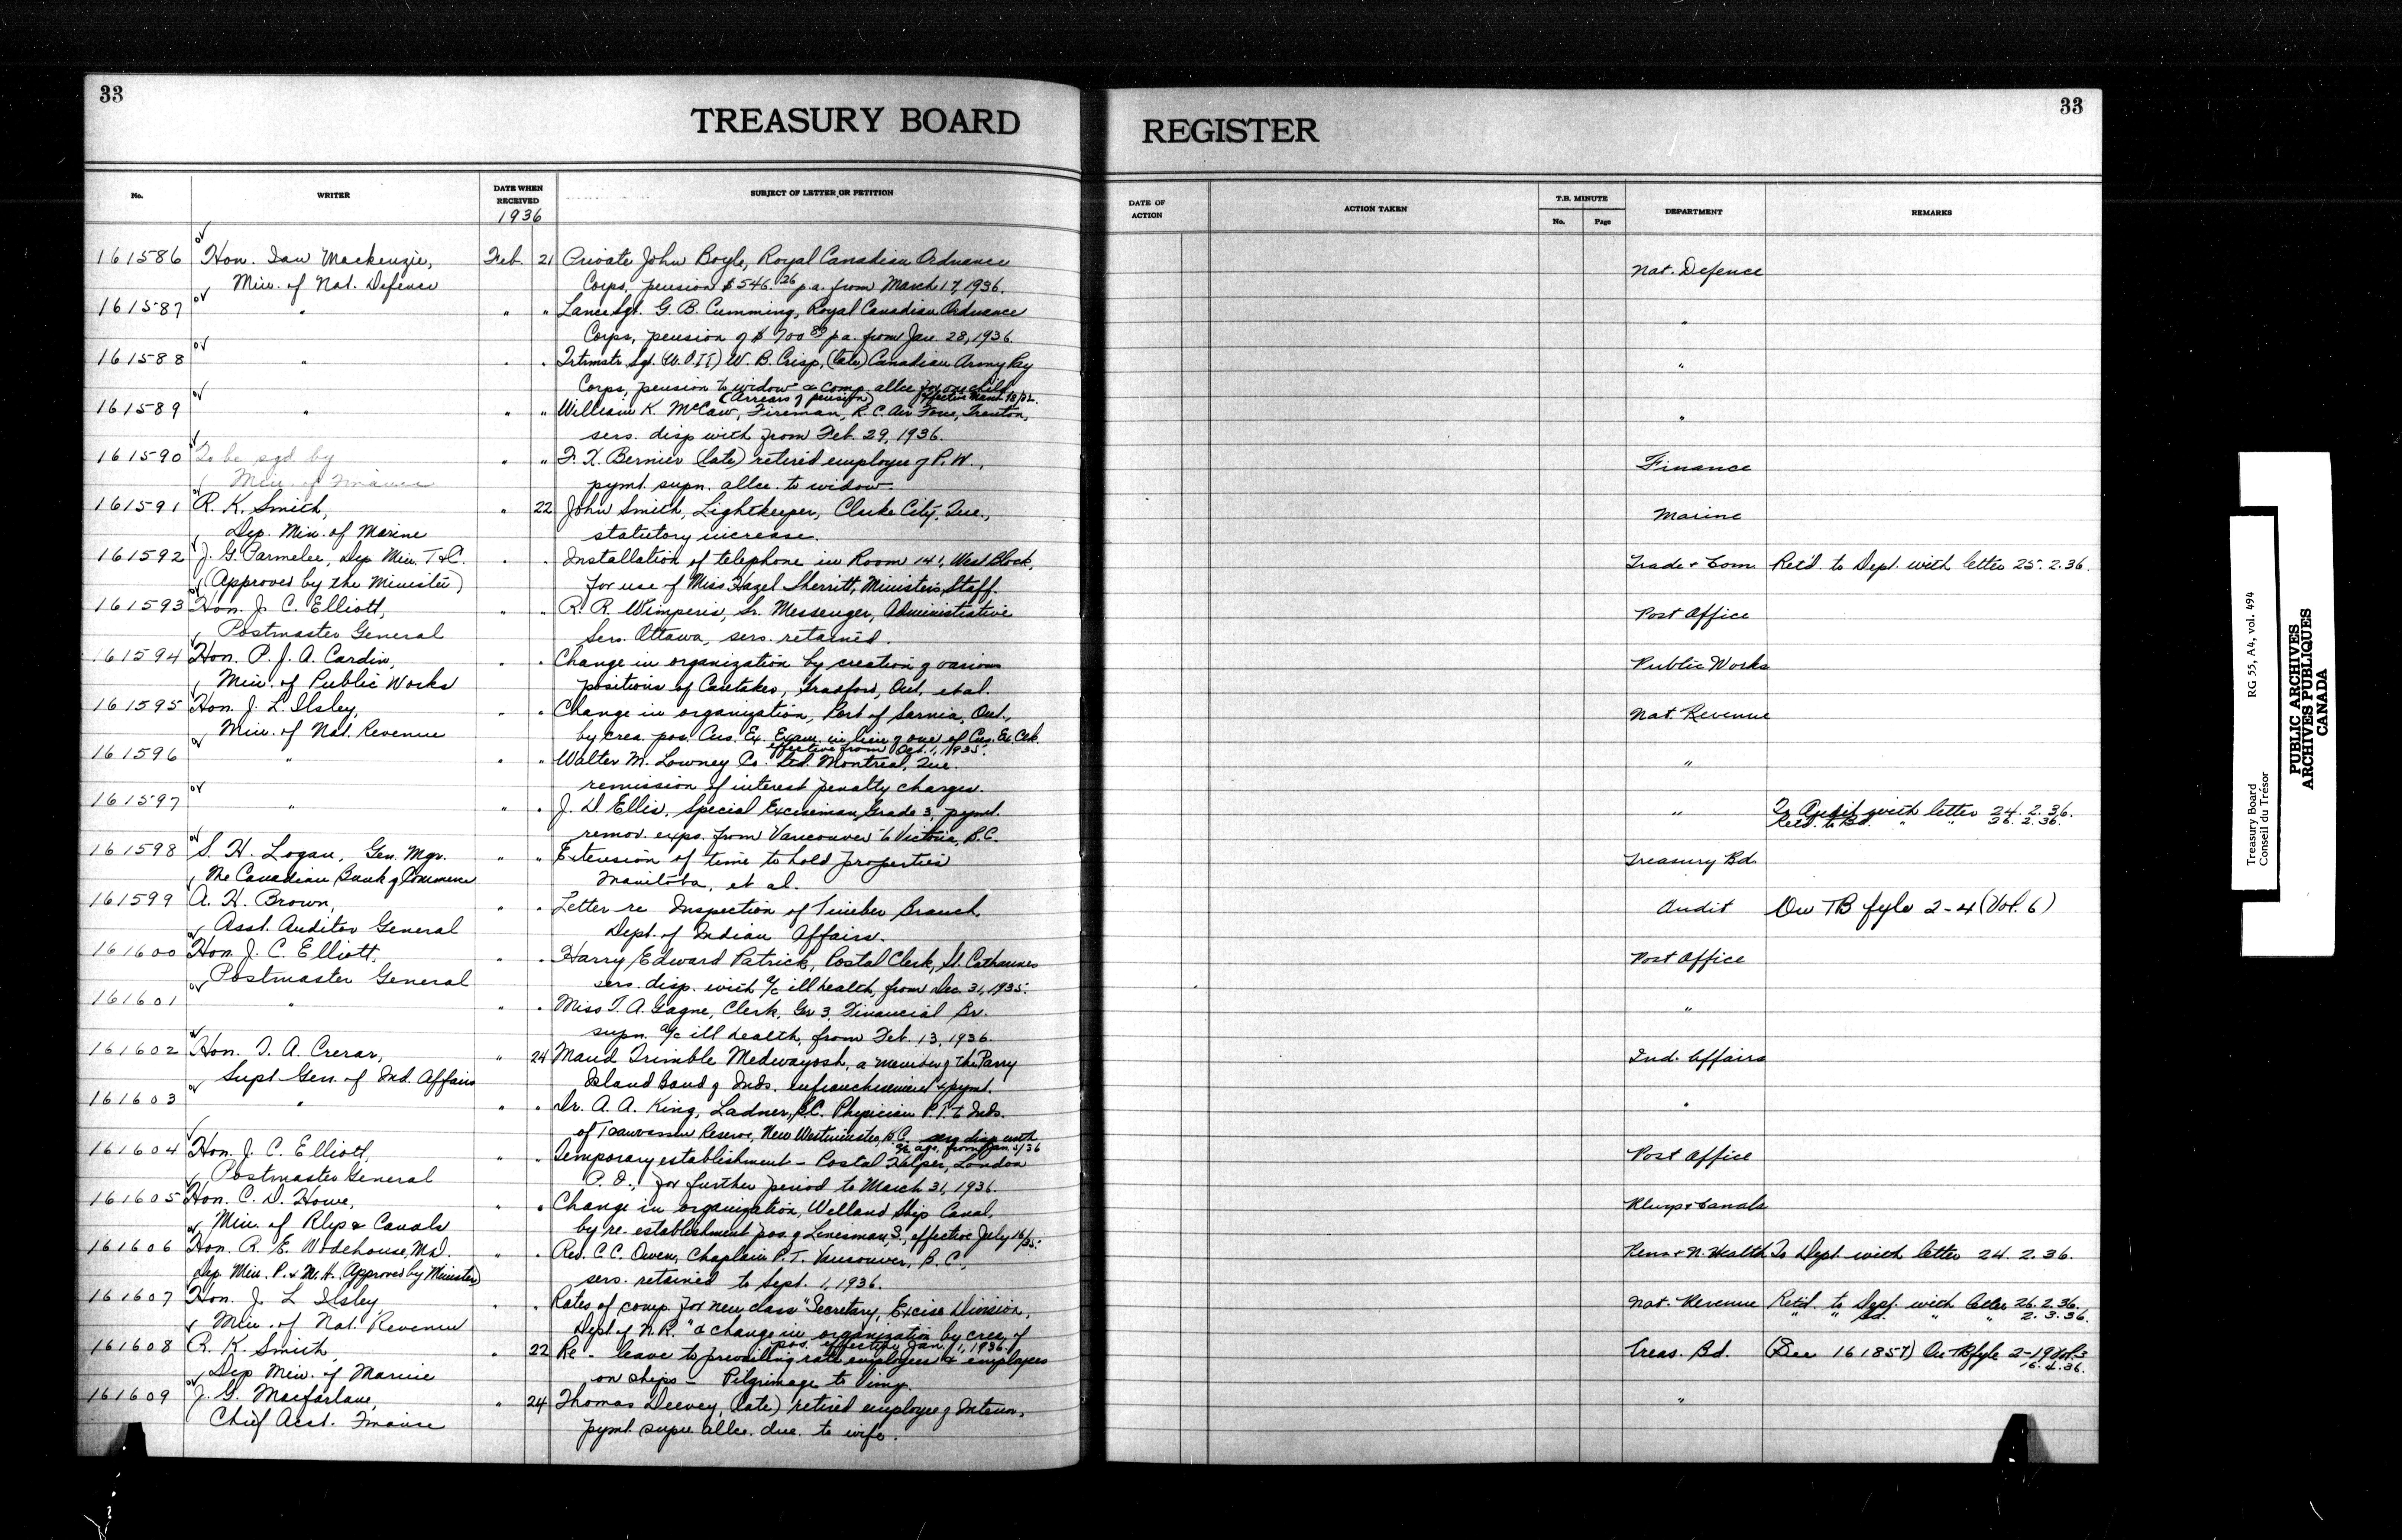 33
TREASURY BOARD
No.
WRITER
DATE WHEN RECEIVED
1936
SUBJECT OF LETTER OR PETITION
161586 Hon. Ian Mackenzie, Feb. 21 Private John Boyle, Royal Canadian Ordnance
Min. of Nat. Defence Corps, pension $546.26 p.a. from March 17, 1936.
161587 " " " Lance Sgt. G. B. Cumming, Royal Canadian Ordnance
Corps, pension of $700 89 p.a. from Jan. 28, 1936.
161588 " " " Qrtmstr. Sgt. (W.O.II) W. B. Crisp, (late) Canadian Army Pay
Corps, pension to widow & comp. allce for one child
(Arrears of pension) effective March
161589 " " " William K. McCaw, Fireman, R. C. Air Force, Trenton,
sers. disp with from Feb. 29, 1936.
161590 To be sgd by " " F. X. Bernier (late) retired employee of P.W.,
Min. of Finance pymt. supn. allce. to widow.
161591 R. K. Smith, " 22 John Smith, Lightkeeper, Clarke City, Que.,
Dep. Min. of Marine statutory increase.
161592 J. G. Parmelee, Dep Min. T & C. " " Installation of telephone in Room 141, West Block,
(Approved by the Minister) for use of Miss Hazel Sherritt, Minister's Staff.
161593 Hon. J. C. Elliott, " " R. R. Wimperis, Sr. Messenger, Administrative
Postmaster General Serv. Ottawa, sers. retained.
161594 Hon. P. J. A. Cardin, " " Change in organization by creation of various
Min. of Public Works positions of Caretaker, Ont. et al.
161595 Hon. J. L. Ilsley, " " Change in organization, Port of Sarnia, Ont.,
Min. of Nat. Revenue by crea. pos. Cus. Ex. Exam. in lieu of one of Cus. Ex. Clk.
effective from Oct. 1, 1935.
161596 " " " Walter M. Lowney Co. Ltd. Montreal, Que.
remission of interest penalty charges.
161597 " " " J. D. Ellis, Special Exciseman, Grade 3, pymt.
remov. exps. from Vancouver to Victoria, B.C.
161598 S. H. Logan, Gen. Mgr. " " Extension of time to hold properties
The Canadian Bank of Commerce Manitoba, et al.
161599 A. H. Brown, " " Letter re Inspection of Timber Branch,
Asst. Auditor General Dept. of Indian Affairs.
161600 Hon. J. C. Elliott, " " Harry Edward Patrick, Postal Clerk, St. Catharines
Postmaster General sers. disp. with a/c ill health, from Dec. 31, 1935.
161601 " " " Miss T. A. Gagne, Clerk, Gr 3, Financial Br.
supn. a/c ill health, from Feb. 13, 1936.
161602 Hon. T. A. Crerar, " 24 Maud Trimble Medwayosh, a member of the Parry
Supt Gen. of Ind. Affairs Island Band of Inds. enfranchisement & pymt.
161603 " " " Dr. A. A. King, Ladner, B.C. Physician P.T. to Inds.
of Tsawassen Reserve, New Westminster, B.C. serv disp with
a/c age from Jan.
161604 Hon. J. C. Elliott, " " Temporary establishment - Postal Helper, London
Postmaster General P. O., for further period to March 31, 1936.
161605 Hon. C. D. Howe, " " Change in organization, Welland Ship Canal,
Min. of Rlys & Canals by re-establishment pos. of Linesman, S., effective July 16/35.
161606 Hon. R. E. Wodehouse, M.D. " " Rev. C. C. Owen, Chaplain P.T. Vancouver, B. C.,
Dep. Min. P. & N. H. Approved by Minister) sers. retained to Sept. 1, 1936.
161607 Hon. J. L Ilsley " " Rates of comp. for new class "Secretary, Excise Division,
Min. of Nat. Revenue Dept of N.R." & change in organization by crea. of
pos. effective Jan. 1, 1936.
161608 R. K. Smith, " 22 Re - leave to prevailing rate employees & employees
Dep Min. of Marine on ships - Pilgrimage to Vimy.
161609 J. G. Macfarlane, " 24 Thomas Deevey (late) retired employee of Interior,
Chief Acct. Finance pymt supn allce. due to wife.
REGISTER
33
DATE OF ACTION
ACTION TAKEN
T.B. MINUTE
No. Page
DEPARTMENT
REMARKS
Nat. Defence
"
"
"
Finance
Marine
Trade & Com. Retd. to Dept. with letter 25.2.36.
Post Office
Public Works
Nat. Revenue
"
" To Audit with letter 24.2.36.
Retd. to Bd. " " 26.2.36.
Treasury Bd.
Audit On TB fyle 2-4 (Vol. 6)
Post Office
"
Ind. Affairs
"
Post Office
Rlwys & Canals
Pens & N. Health To Dept. with letter 24.2.36.
Nat. Revenue Retd. to Dept. with letter 26.2.36.
" " Bd. " " 2.3.36.
Treas. Bd. (See 161857) On TB fyle 2-19 Vol. 3
16.4.36.
"
Treasury Board
Conseil du Trésor
RG 55, A4, vol. 494
PUBLIC ARCHIVES
ARCHIVES PUBLIQUES
CANADA